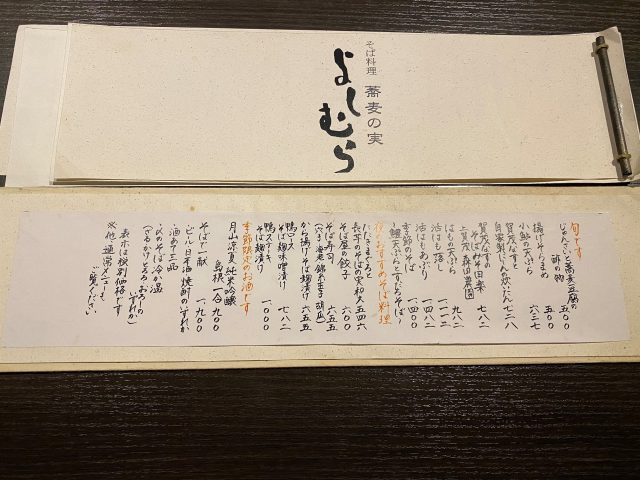 そば料理 蕎麦の実
よしむら
旬です
じゅんさいと蕎麦豆腐の
酢の物 五〇〇
揚げそらまめ 五〇〇
小鮎の天ぷら 六三七
賀茂なすと
自家製にしんの炊いたん 七二八
賀茂なすの
そば田楽 七八二
上賀茂 森田農園
はもの天ぷら 九八二
活はも落し 一一一二
活はもあぶり 一四八二
季節のそば 一四〇〇
〜鱧天ぷらとすだちそば〜
夜のおすすめそば料理
たたきまぐろと
長芋のそばの実和え 五四六
そば屋の餃子 六〇〇
そば寿司 六五五
(穴子 海老 錦糸玉子 胡瓜)
から揚げそば麹漬け 六五五
鴨ロース
そば麹味噌漬け 七八二
鴨ステーキ
そば麹漬け 一〇〇〇
季節限定のお酒です
月山 凉夏 純米吟醸
島根 一合 九〇〇
そばで一献 一九〇〇
・ビール 日本酒 焼酎のいずれか
・酒あて三品
・〆のそば 冷か温
(ざる かけ とろろ おろしの
いずれか)
表示は税別価格です
※他、通常メニューも
ご覧ください